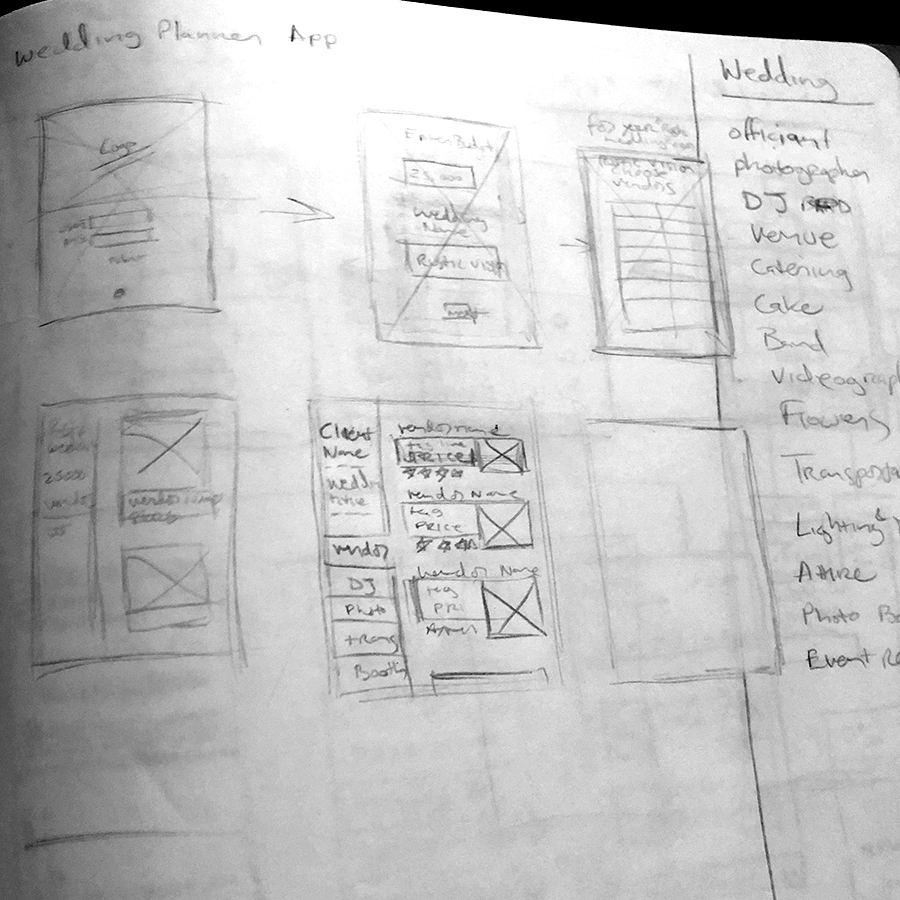 Wedding Planner App
Logo
Enter Budget
25,000
Wedding
Name
Rustic Vista
for your
choose
vendors
25000
vendor
DJ
Client
Name
title
vendor
DJ
Photo
trans
Booth
vendor name
tag line
PRICE
vendor Name
tag
PRICE
vendor Name
tag
PRI
Wedding
officiant
photographer
DJ
Venue
Catering
Cake
Band
Videograp
Flowers
Transporta
Lighting &
Attire
Photo Bo
Event Re